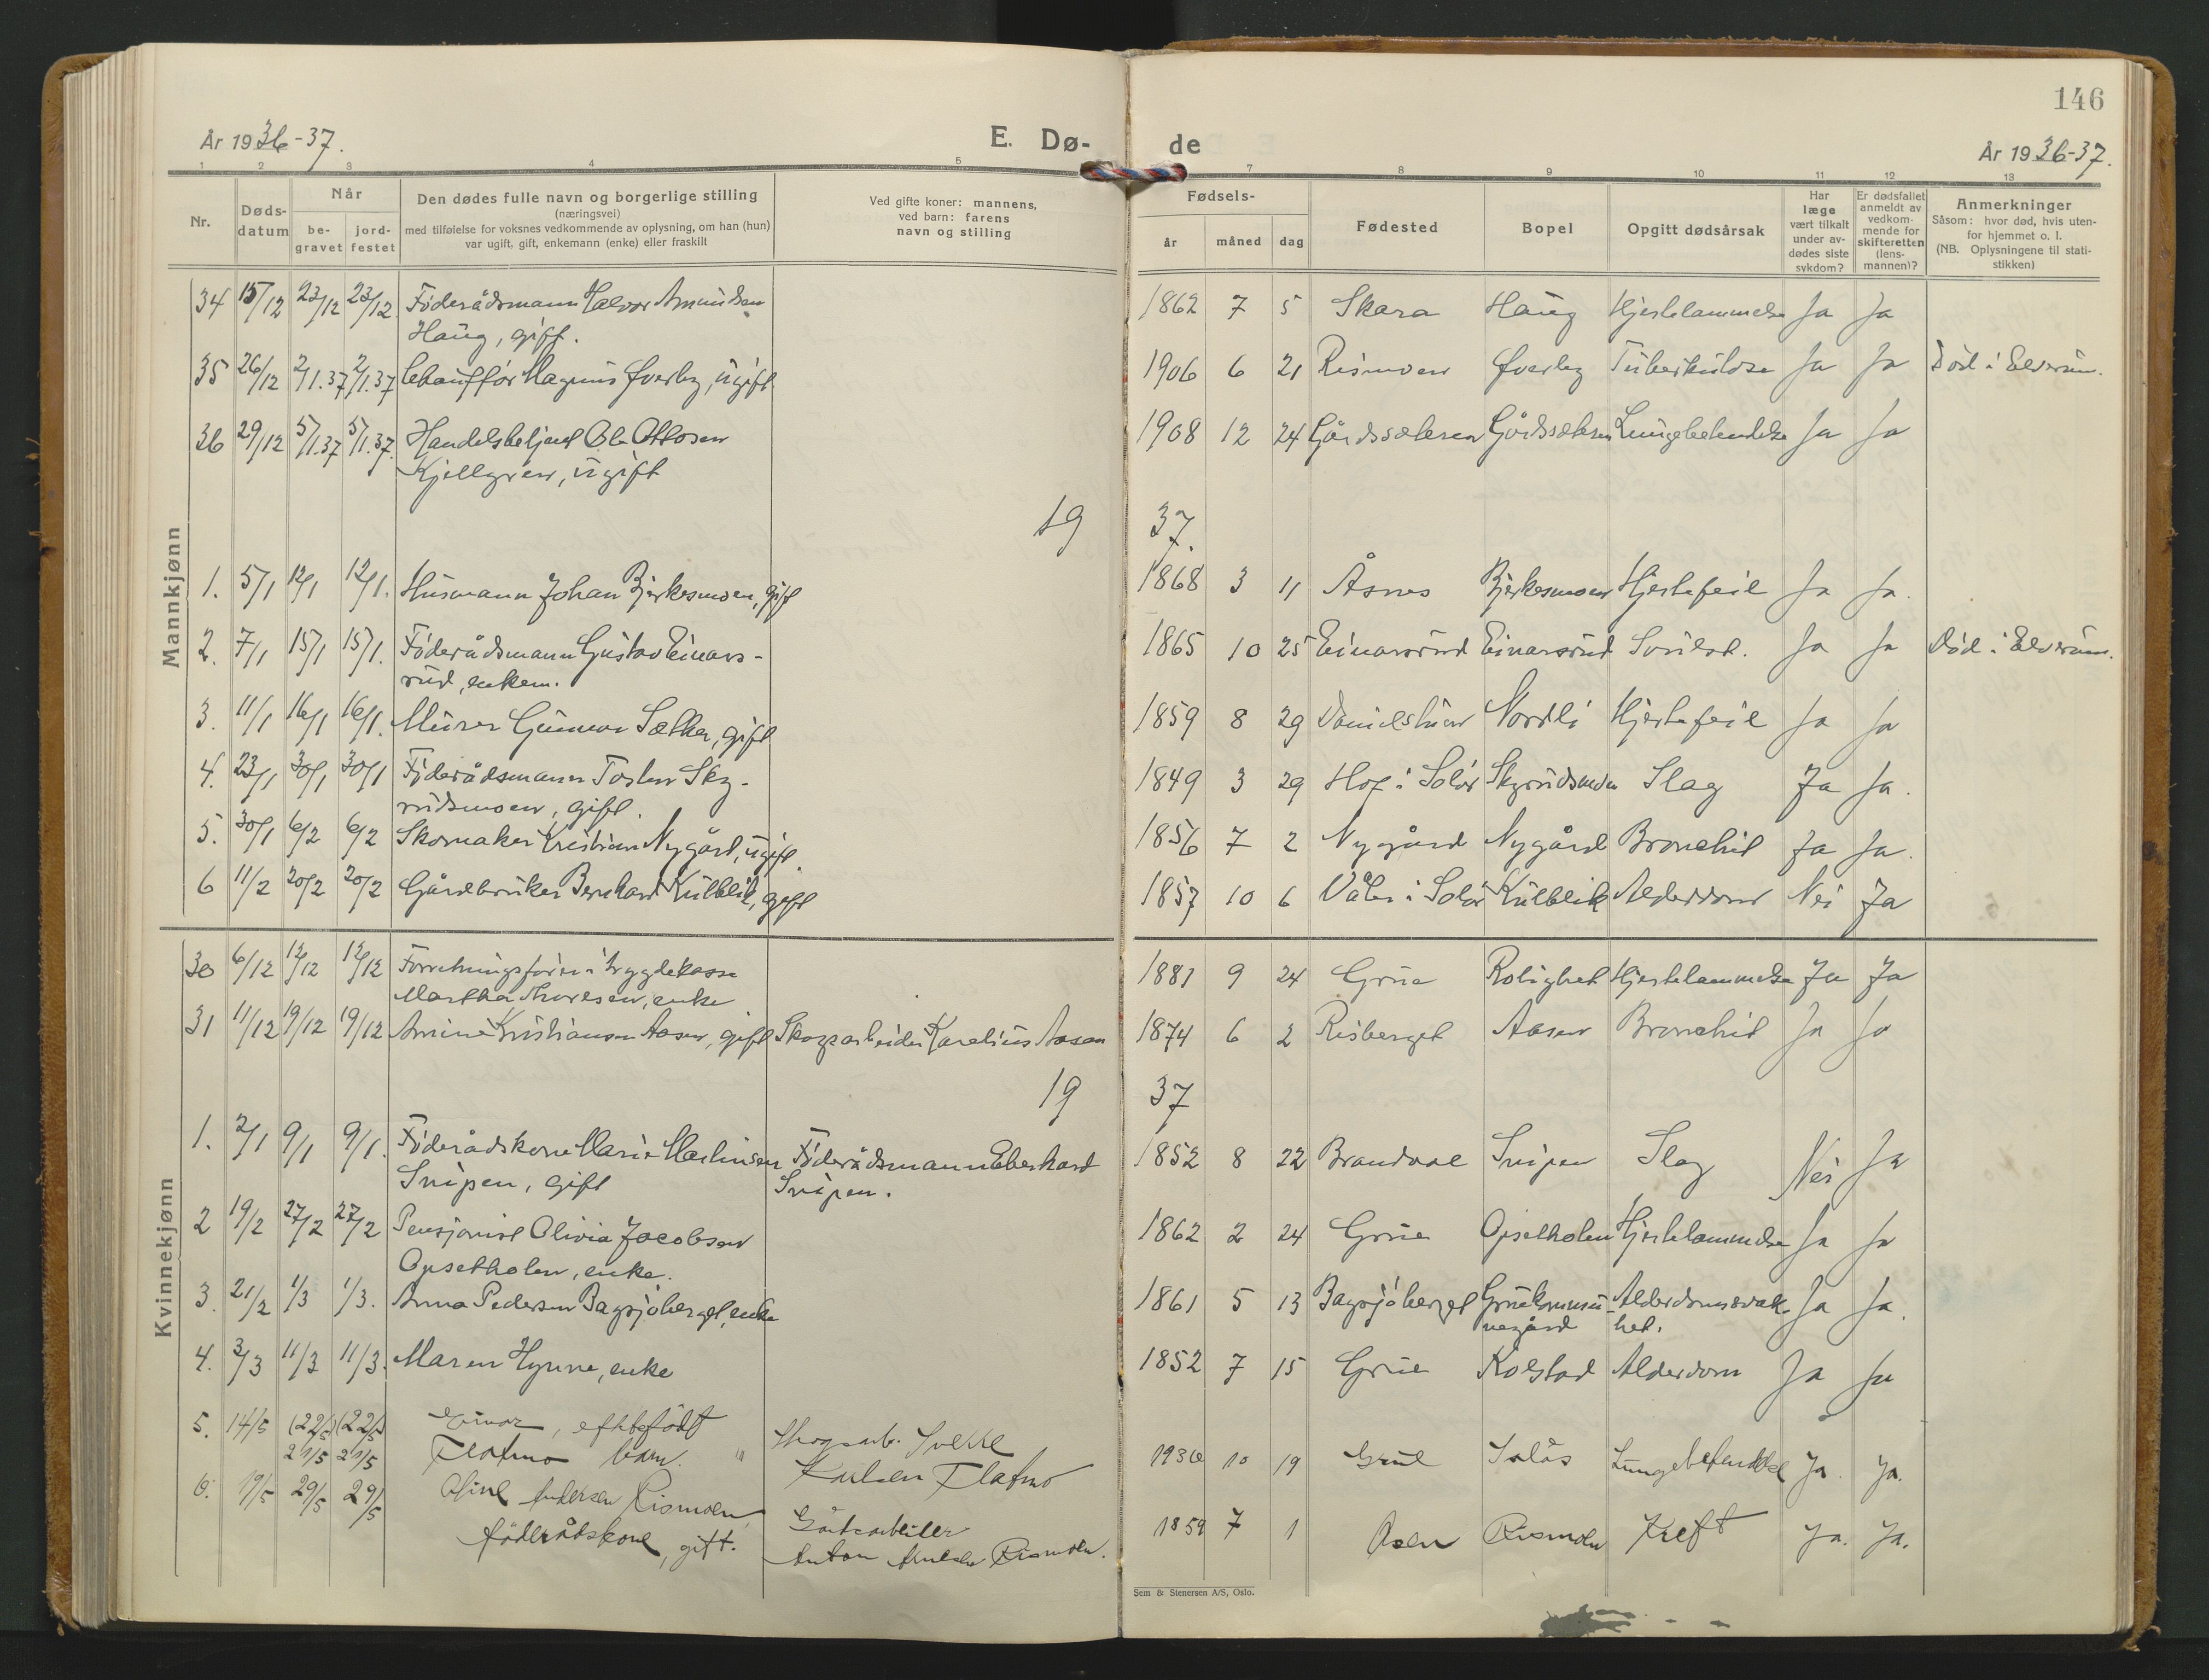 146
År 1936-37.
E. Dø-
de
År 1936-37.
1 2 3 4 5 7 8 9 10 11 12 13
Nr.
Døds-
datum
Når
be-
gravet
jord-
festet
Den dødes fulle navn og borgerlige stilling
(næringsvei)
med tilføielse for voksnes vedkommende av oplysning, om han (hun)
var ugift, gift, enkemann (enke) eller fraskilt
Ved gifte koner: mannens,
ved barn: farens
navn og stilling
Fødsels-
år måned dag
Fødested
Bopel
Opgitt dødsårsak
Har
læge
vært tilkalt
under av-
dødes siste
sykdom?
Er dødsfallet
anmeldt av
vedkom-
mende for
skifteretten
(lens-
mannen)?
Anmerkninger
Såsom: hvor død, hvis uten-
for hjemmet o. l.
(NB. Oplysningene til stati-
stikken)
Mannkjønn
34 15/12 23/12 23/12 Føderådsmann Halvor Amundsen 1862 7 5 Skara Haug Hjertelammelse Ja Ja
Haug, gift.
35 26/12 2/1.37 2/1.37 Chauffør Magnus Øverby, ugift 1906 6 21 Rismoen Øverby Tuberkulose Ja Ja Død i Elverum.
36 29/12 5/1.37 5/1.37. Handelsbetjent Ola Ottosen 1908 12 24 Gårdssæteren Gårdssæteren Lungebetendelse Ja Ja
Kjellgren, ugift
19 37.
1. 5/1 12/1 12/1. Husmann Johan Bjerkesmoen, gift 1868 3 11 Åsnes Bjerkesmoen Hjertefeil Ja Ja.
2. 7/1 15/1 15/1. Føderådsmann Gustav Einars- 1865 10 25 Einarsrud Einarsrud Ja Ja Død i Elverum.
rud, enkem.
3. 11/1 16/1 16/1. Murer Gunnar Sæther, gift 1859 8 29 Nordli Hjertefeil Ja Ja
4. 23/1 30/1 30/1 Føderådsmann Torsten Sky- 1849 3 29 Hof i Solør Skyrudsmoen Slag Ja Ja.
rudsmoen, gift.
5. 30/1 6/2 6/2 Skomaker Kristian Nygård, ugift. 1856 7 2 Nygård Nygård Bronchit Ja Ja.
6 11/2 20/2 20/2 Gårdbruker Bernhard Kulblik, gift 1857 10 6 Våler i Solør Kulblik Alderdom Nei Ja
Kvinnekjønn
30 6/12 12/12 12/12 Forretningsfører i trygdekasse 1881 9 24 Grue Rolighet Hjertelammelse Ja Ja
Martha Thoresen, enke
31 11/12 19/12 19/12 Amine Kristiansen Aasen, gift Skogsarbeider Karelius Aasen 1874 6 2 Risberget Aasen Bronchit Ja Ja
19 37
1. 2/1 9/1 9/1. Føderådskone Marie Martinsen Føderådsmann Eberhard 1852 8 22 Brandval Snipen Slag Nei Ja
Snipen, gift Snipen.
2 19/2 27/2 27/2 Pensjonist Olivia Jacobsen 1862 2 24 Grue Opsetholen Hjertelammelse Ja Ja
Opsetholen, enke.
3. 21/2 1/3 1/3. Anna Pedersen Bagsjøberget, enke 1861 5 13 Bagsjøberget Gruekommu- Alderdomssvak- Ja Ja.
negård het.
4. 3/3 11/3 11/3. Maren Hynne, enke 1852 7 15 Grue Kolstad Alderdom Ja Ja
5. 14/5 (22/5) (22/5) Einar, Skogsarb. Sverre 1936 10 19 Grue Solås Lungebetendelse Ja. Ja.
21/5 21/5 Flatmo barn. Karlsen Flatmo
6. 19/5 29/5 29/5 Andersen Rismoen, 1859 7 1 Åsen Rismoen Kreft Ja. Ja.
føderådskone, gift. Anton Rismoen.
Sem & Stenersen A/S, Oslo.